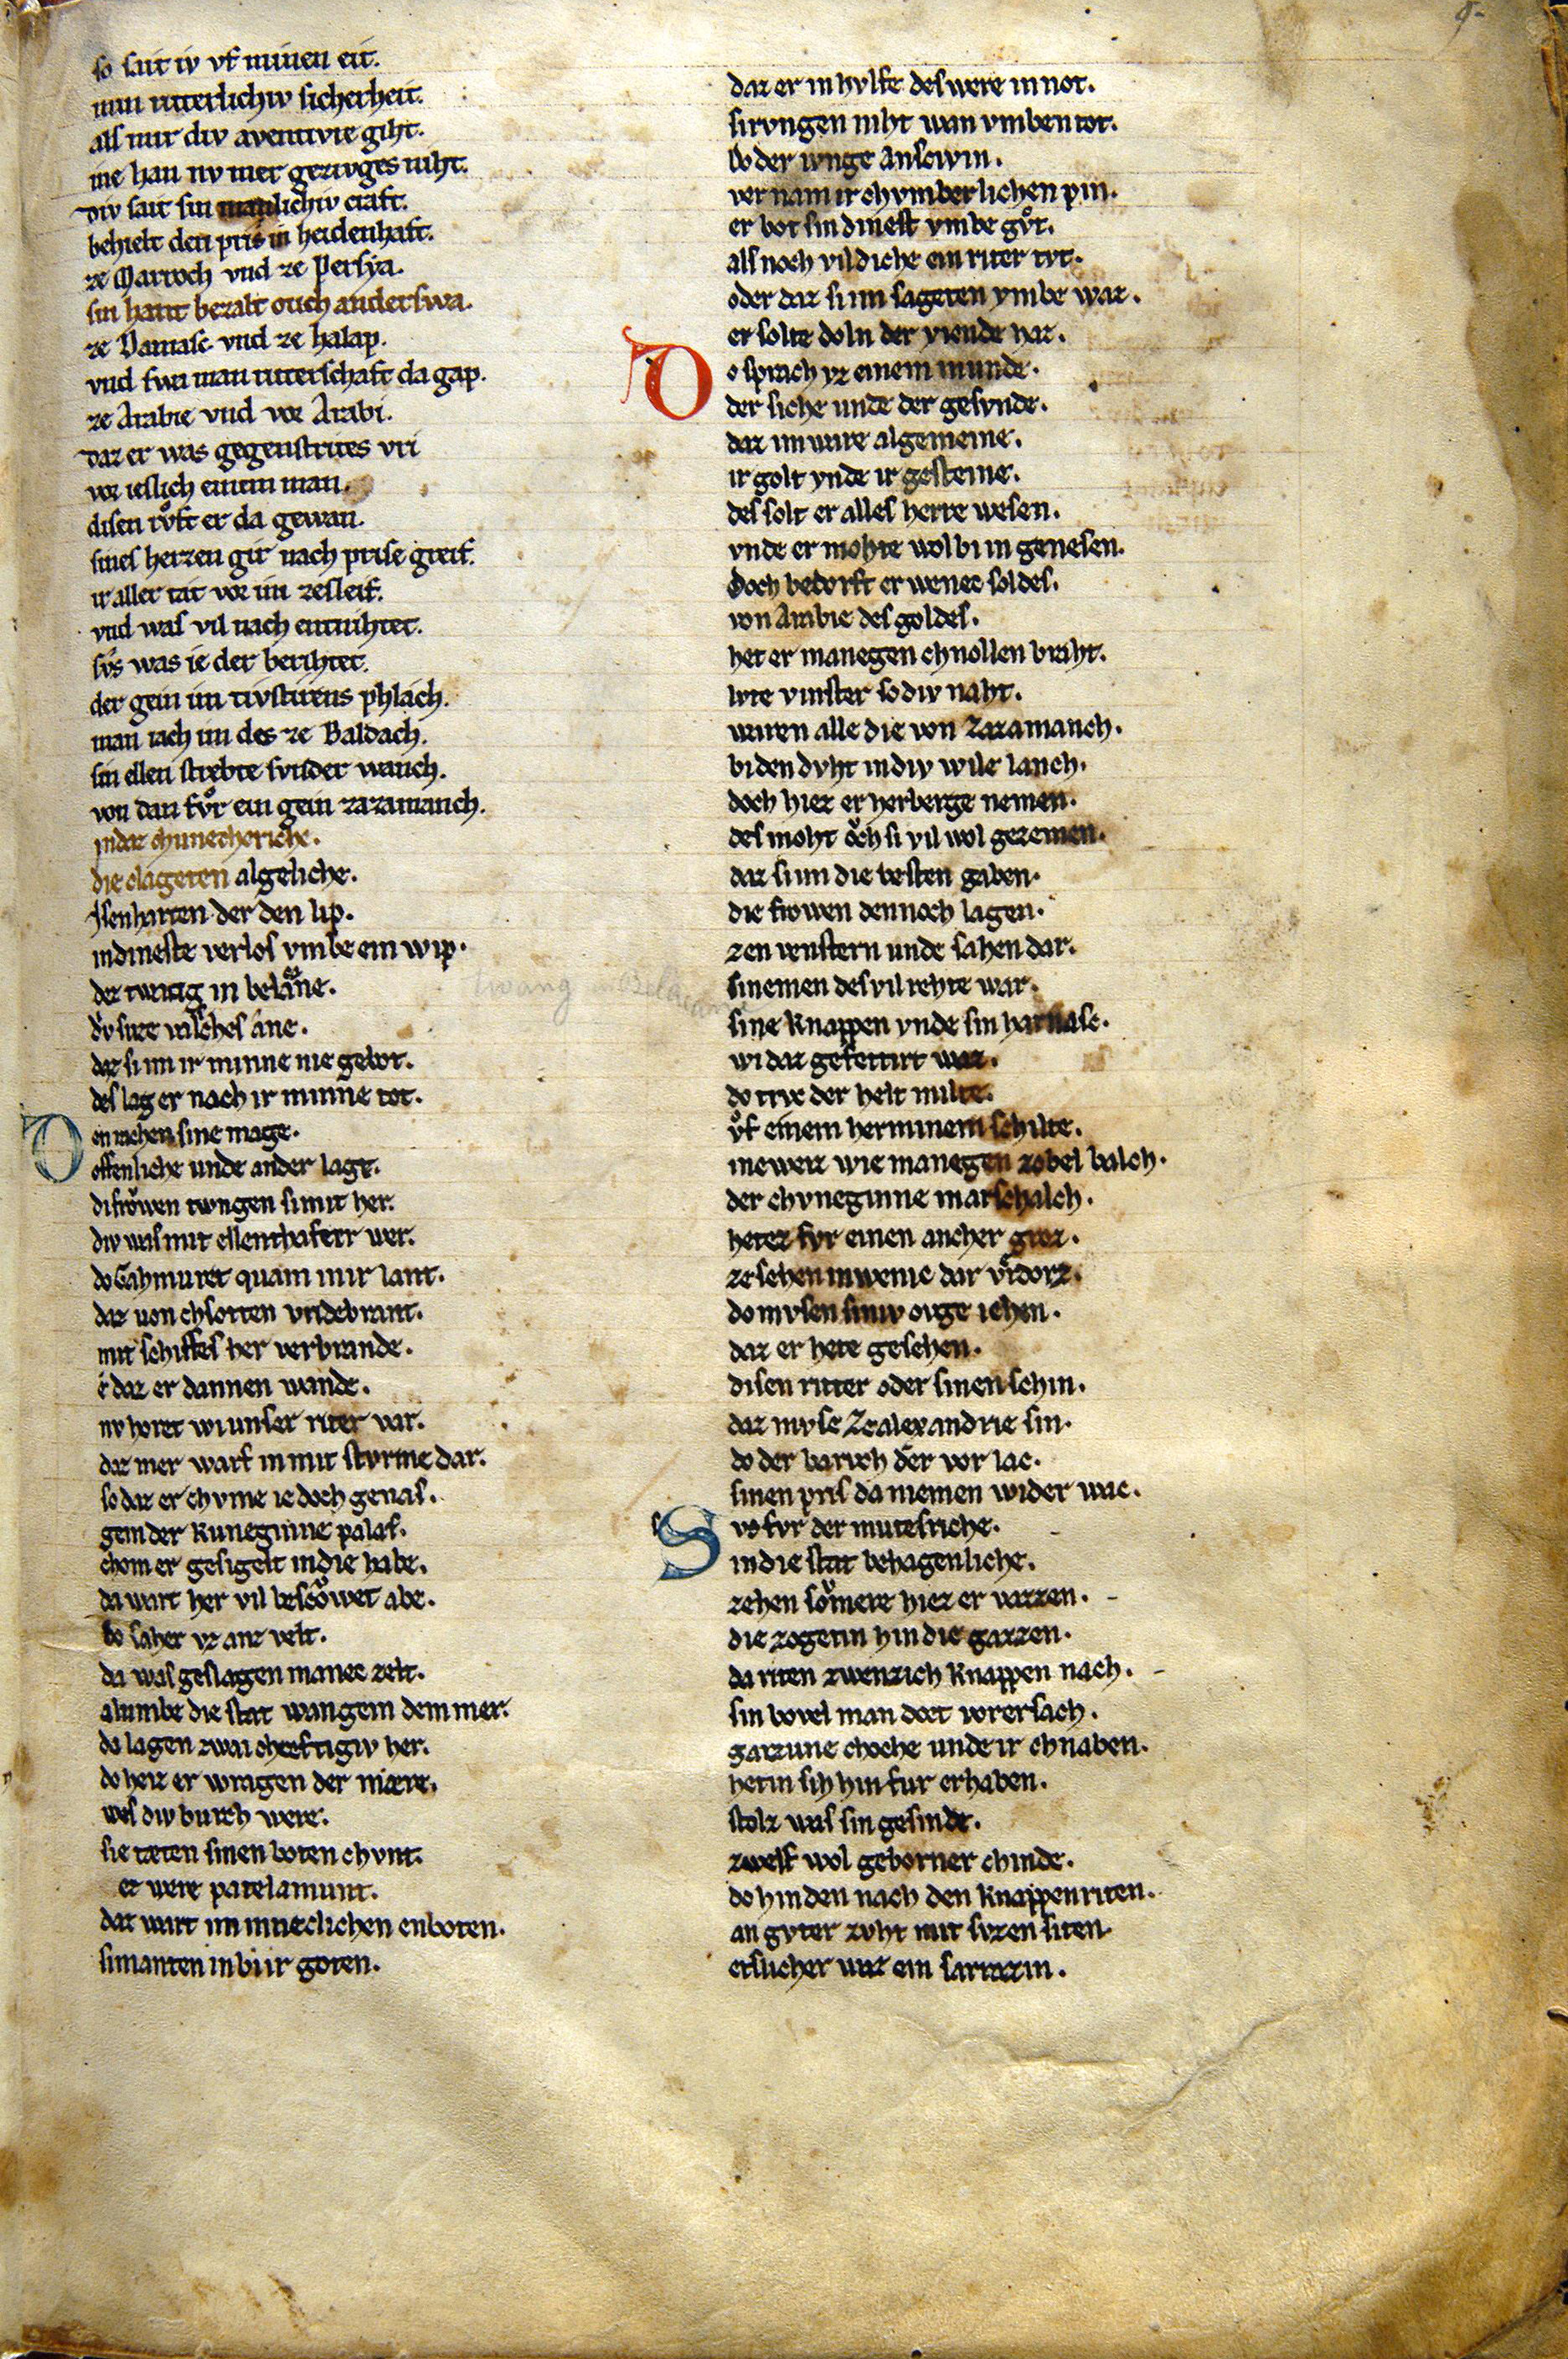 so sait iv vf minen eit.
min ritterlichiv sicherheit.
als mir div aventivre giht.
ine han nv mer gezivges niht.
div sait sin manlichiv craft.
behielt den pris in heidenhaft.
ze Marroch vnd ze Persya.
sin hant bezalt ouch anderswa.
ze Damasc vnd ze halap.
vnd swa man ritterschaft da gap.
ze Arabie vnd vor Arabi.
daz er was gegenstrites vri
vor ieslich einem man.
disen rvͦft er da gewan.
sines herzen gir nach prise greif.
ir aller tat vor im zesleif.
vnd was vil nach entnihtet.
svs was ie der berihtet.
der gein im tivstirens phlach.
man iach im des ze Baldach.
sin ellen strebte svnder wanch.
von dan fvͦr ein gein zazamanch.
in daz chunecheriche.
die clageten algeliche.
Isenharten der den lip.
in dineste verlos vmbe ein wip.
dez twang in belacane.
dv svze valsches ane.
daz si im ir minne nie gebot.
des lag er nach ir minne tot.
Den rachen sine mage.
offenliche unde ander lage.
di froͮwen twngen si mit her.
div was mit ellenthafter wer.
do Gahmuret quam inir lant.
daz uon chsotten vridebrant.
mit schiffes her verbrande.
e daz er dannen wande.
nv horet wi unser riter var.
daz mer warf in mit stvrme dar.
so daz er chvme ie doch genas.
gein der kuneginne palas.
chom er gesigelt in die habe.
da wart her vil bescoͮwet abe.
do saher vz anz velt.
da was geslagen manec zelt.
alumbe die stat wan gein dem mer.
do lagen zwai chreftigiv her.
do hiez er wragen der mære.
wes div burch were.
sie tæten sinen boten chvnt.
ez were patelamunt.
daz wart im minneclichen enboten.
si manten in bi ir goten.
daz er in hvlfe des were in not.
si rvngen niht wan vmben tot.
do der ivnge Anscivin.
ver nam ir chvmberlichen pin.
er bot sin dinest vmbe gvͦt.
als noch vil diche ein riter tvt.
oder daz si im sageten vmbe waz.
er solte doln der viende haz.
Do sprach vz einem munde.
der siche unde der gesvnde.
daz im were algemeine.
ir golt vnde ir gesteine.
des solt er alles herre wesen.
vnde er mohte wol bi in genesen.
Doch bedorft er wenec soldes.
von Arabie des goldes.
het er manegen chnollen braht.
lvte vinster so div naht.
waren alle die von Zazamanch.
bi den dvht in div wile lanch.
doch hiez er herberge nemen.
des moht oͮch si vil wol gezemen.
daz si im die besten gaben.
die frowen dennoch lagen.
zen venstern unde sahen dar.
si nemen des vil rehte war.
sine knappen vnde sin harnasc.
wi daz gefeitiert waz.
do trvc der helt milte.
vͦf einem herminem schilte.
ine weiz wie manegen zobel balch.
der chvneginne marschalch.
hetez fvr einen ancher groz.
ze sehen in wenic dar vͦrdorz.
do mvsen siniv ovge iehen.
daz er hete gesehen.
disen ritter oder sinen schin.
daz mvse Ze alexandrie sin.
do der barvch der vor lac.
sinen pris da niemen wider wac.
Svs fvr der mutes riche.
in die stat behagenliche.
zehen soͮmere hiez er vazzen.
die zogetin hin die gazzen.
da riten zwenzich knappen nach.
sin bovel man dort vor ersach.
garzune choche unde ir chnaben.
hetin sih hin fur erhaben.
stolz was sin gesinde.
zwelf wol geborner chinde.
do hinden nach den knappen riten.
an gvter zvht mit svzen siten.
etslicher waz ein sarrazin.